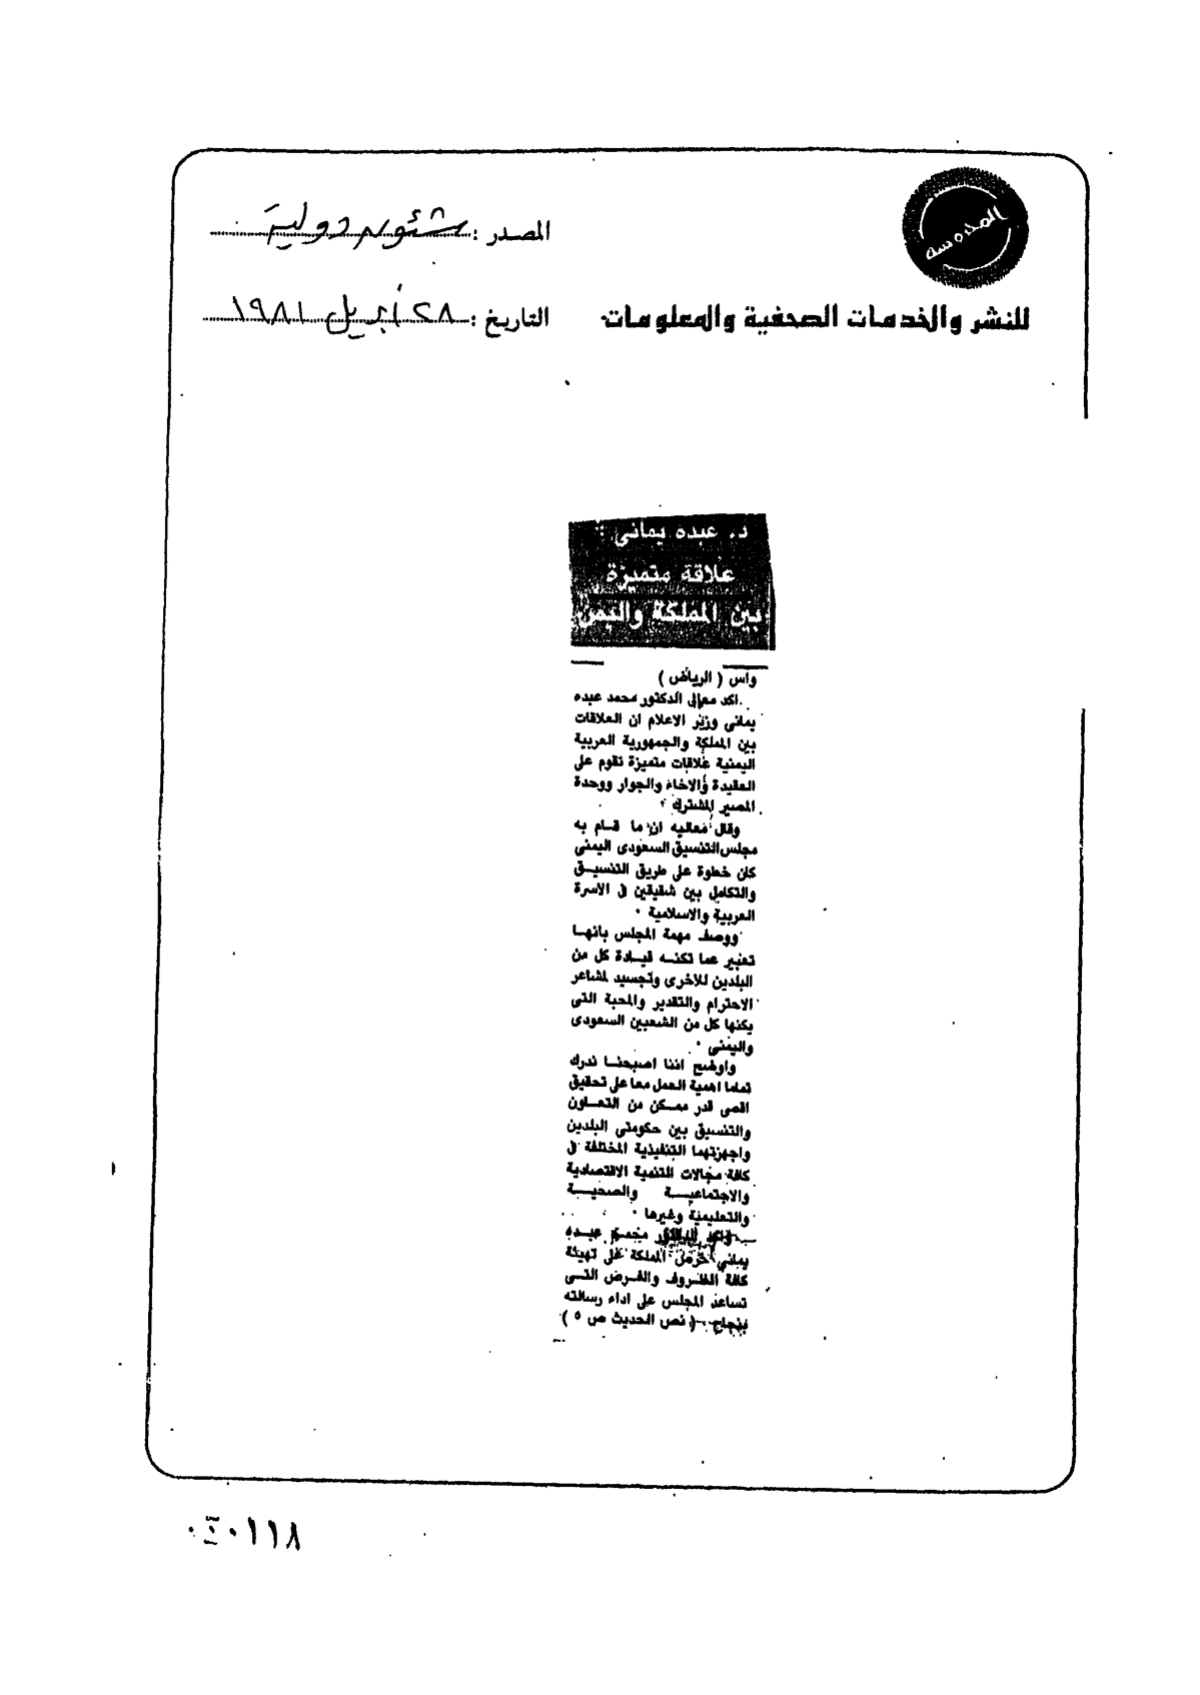 المحروسة
للنشر والخدمات الصحفية والمعلومات
المصدر : شئون دولية
التاريخ : ٢٨ أبريل ١٩٨١
د. عبده يماني :
علاقة متميزة
بين المملكة واليمن
واس ( الرياض )
اكد معالى الدكتور محمد عبده
يمانى وزير الاعلام ان العلاقات
بين المملكة والجمهورية العربية
اليمنية علاقات متميزة تقوم على
العقيدة والاخاء والجوار ووحدة
المصير المشترك ٠
وقال معاليه ان ما قام به
مجلس التنسيق السعودى اليمنى
كان خطوة على طريق التنسيق
والتكامل بين شقيقين فى الاسرة
العربية والاسلامية ٠
ووصف مهمة المجلس بانها
تعبير عما تكنه قيادة كل من
البلدين للاخرى وتجسيد لمشاعر
الاحترام والتقدير والمحبة التى
يكنها كل من الشعبين السعودى
واليمنى ٠
واوضح اننا اصبحنا ندرك
تماما اهمية العمل معا على تحقيق
اقصى قدر ممكن من التعاون
والتنسيق بين حكومتى البلدين
واجهزتهما التنفيذية المختلفة فى
كافة مجالات التنمية الاقتصادية
والاجتماعية والصحية
والتعليمية وغيرها ٠
واكد الدكتور محمد عبده
يمانى حرص المملكة على تهيئة
كافة الظروف والفرص التى
تساعد المجلس على اداء رسالته
بنجاح ٠ ( نص الحديث ص ٥ )